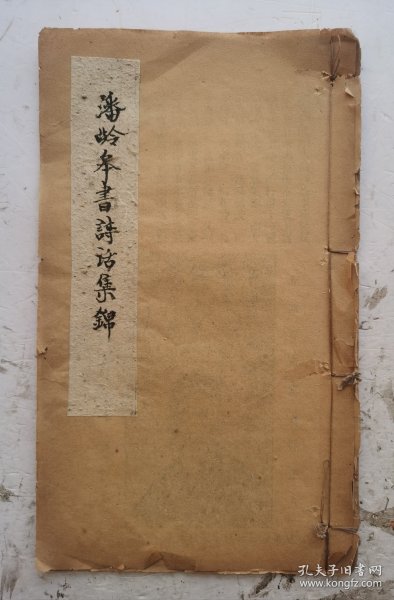 潘龄皋書詩话集錦
孔夫子旧书网
www.kongfz.com